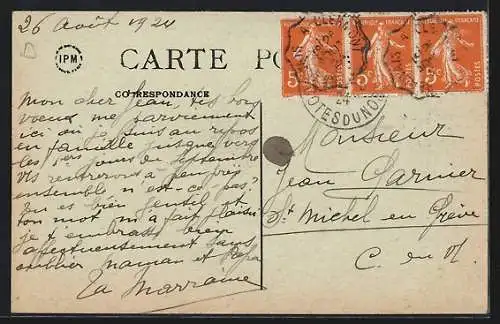 26 Août 1924
IPM
CARTE PO
CORRESPONDANCE
Mon cher Jean, tes bons
voeux me parviennent
ici où je suis au repos
en famille jusque vers
les 1ers jours de Septembre
Vs rentrerez à peu près
ensemble n'est-ce-pas?
Tu es bien gentil et
ton mot m'a fait plaisir
je t'embrasse bien
affectueusement sans
oublier maman et papa
Ta Marraine
5c POSTES
5c POSTES
5c POSTES
COTES DU NORD
Monsieur
Jean Garnier
St Michel en Grève
C. du N.